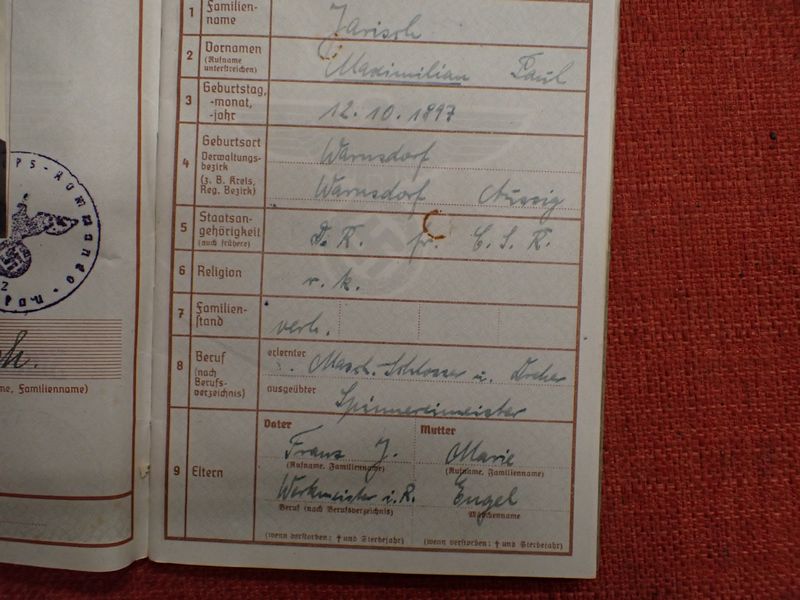 h.
me, Familienname)
1 Familien-
name
Jarisch
2 Vornamen
(Rufname
unterstreichen)
Maximilian Paul
3 Geburtstag,
-monat,
-jahr
12.10.1897
4 Geburtsort
Verwaltungs-
bezirk
(z. B. Kreis,
Reg. Bezirk)
Warnsdorf
Warnsdorf Aussig
5 Staatsan-
gehörigkeit
(auch frühere)
D. R. fr. C. S. R.
6 Religion
r. k.
7 Familien-
stand
verh.
8 Beruf
(nach
Berufs-
verzeichnis)
erlernter
Masch. Schlosser u. Dreher
ausgeübter
Spinnereimeister
9 Eltern
Vater Mutter
Franz J. Marie
(Rufname, Familienname) (Rufname, Familienname)
Werkmeister i. R. Engel
Beruf (nach Berufsverzeichnis) Mädchenname
(wenn verstorben: † und Sterbejahr) (wenn verstorben: † und Sterbejahr)